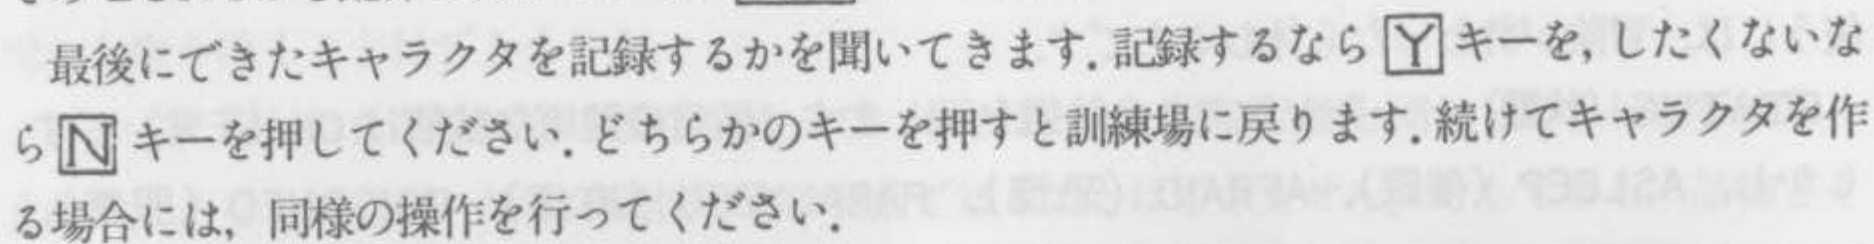 最後にできたキャラクタを記録するかを聞いてきます．記録するなら Y キーを，したくないな
ら N キーを押してください．どちらかのキーを押すと訓練場に戻ります．続けてキャラクタを作
る場合には，同様の操作を行ってください．